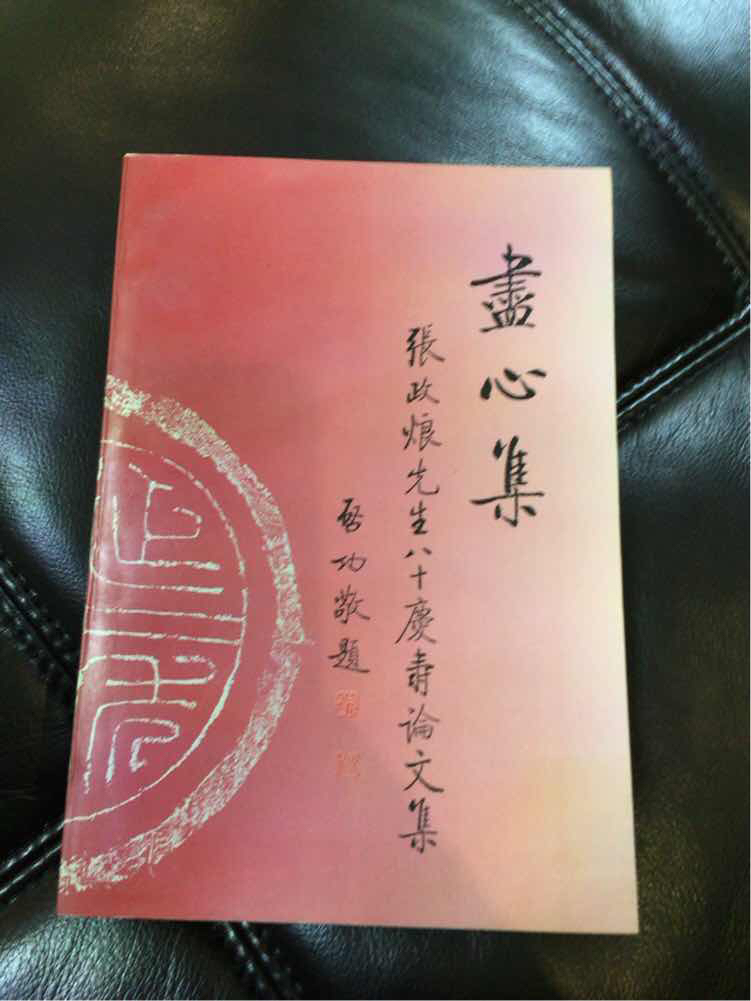 盡心集
張政烺先生八十慶壽論文集
啓功敬題